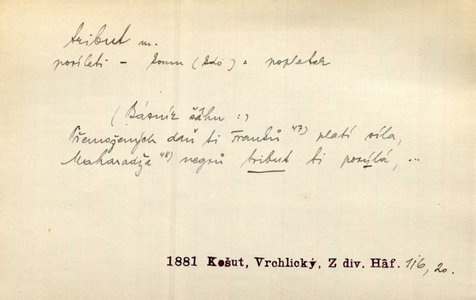 tribut m.
posílati – komu (kdo) = poplatek
(Básník šáhu :)
Přemožených daň ti Franků 47) platí síla,
Maharadža 48) negrů tribut ti posýlá, ...
1881 Košut, Vrchlický, Z div. Hâf. 116, 20.